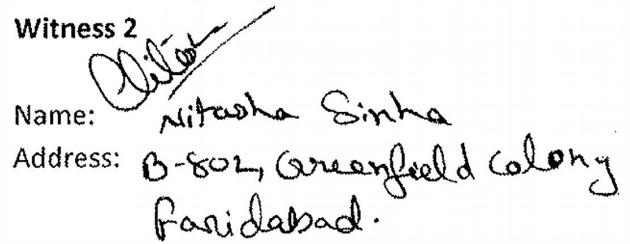 Witness 2
Name: Nitasha Sinha
Address: B-802, Greenfield Colony
Faridabad.